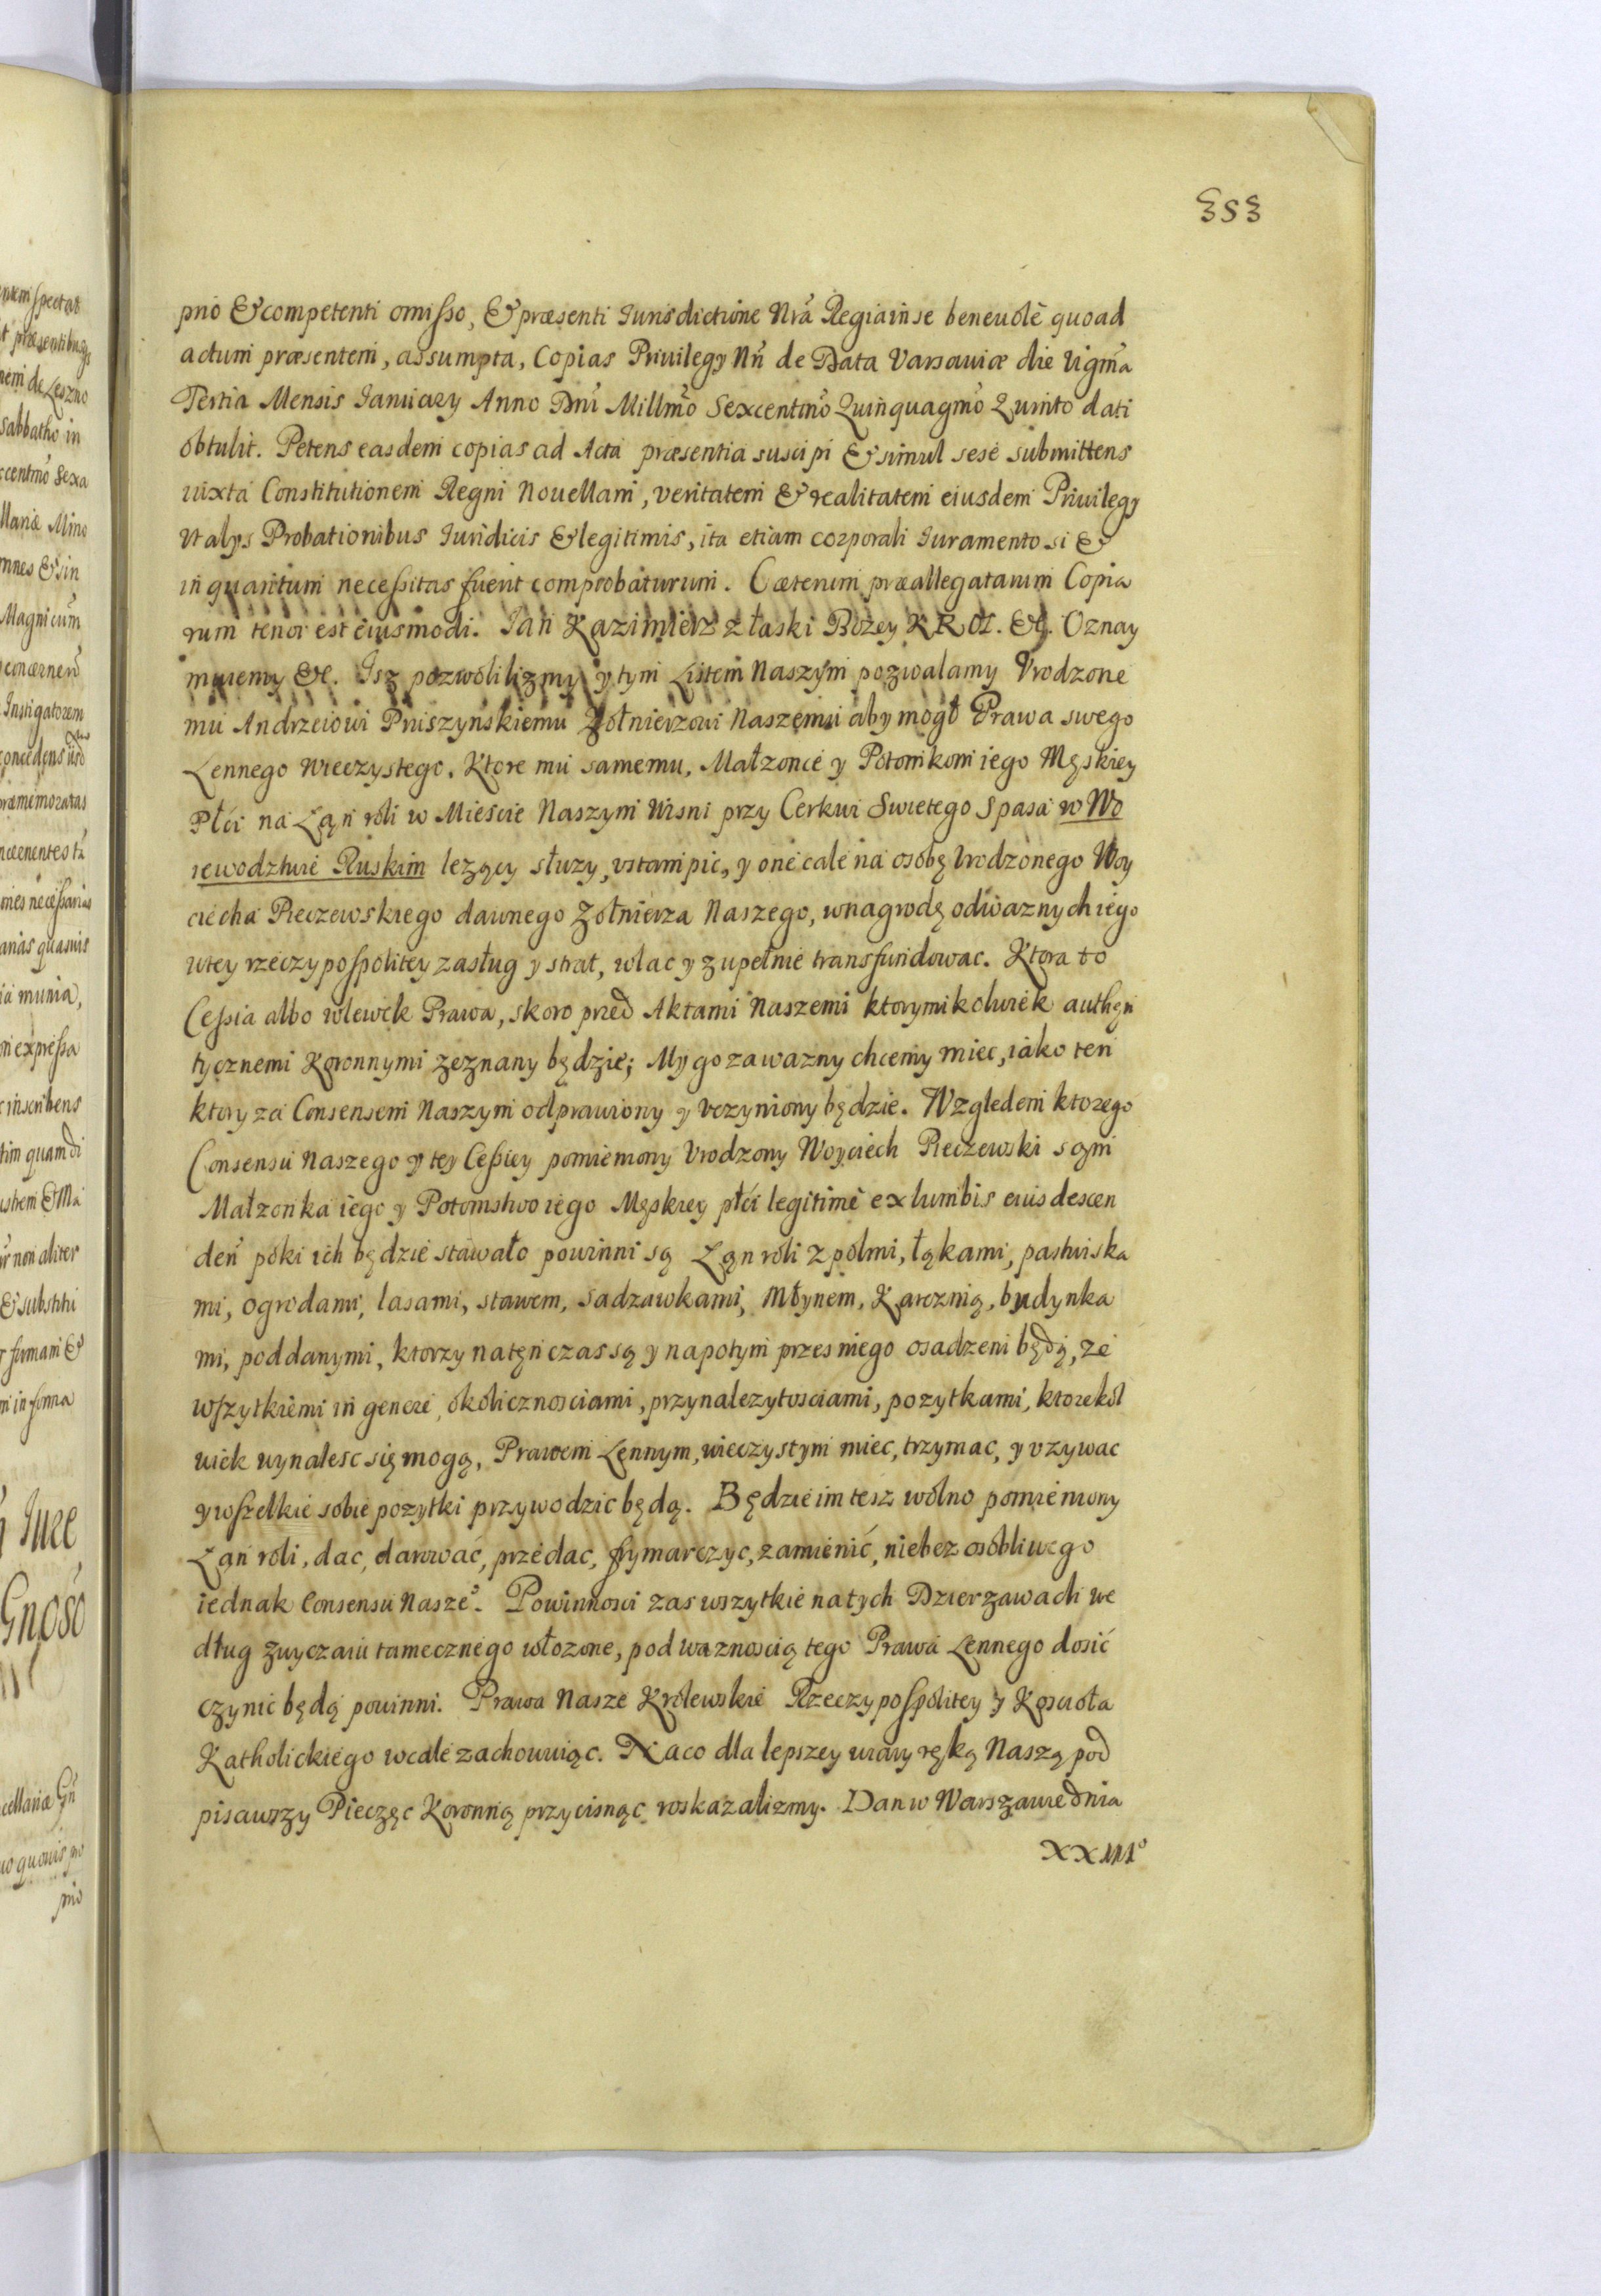 353
prio & competenti omisso, & præsenti Jurisdictione Nrã Regia in se beneuolè quoad
actum præsentem, assumpta, Copias Priuilegy Nrĩ de Data Varsauiæ die Vigmã
Tertia Mensis Januarÿ Anno Dnĩ Millmõ Sexcentmõ Quinquagmõ Quinto dati
obtulit. Petens easdem copias ad Acta præsentia suscipi & simul sese submittens
iuxta Constitutionem Regni Nouellam, veritatem & realitatem eiusdem Priuilegy
vt alys Probationibus Juridicis & legitimis, ita etiam corporali Juramento si &
in quantum necessitas fuerit comprobaturum. Cæterum præallegatarum Copia
rum tenor est eiusmodi. Jan Kazimierz z łaski Bożey KROL. &c. Oznay
muiemy &c. Isz pozwolilizmy y tym Listem Naszym pozwalamy Vrodzone
mu Andrzeiowi Pruszyńskiemu Zołnierzowi Naszemu aby mogł Prawa swego
Lennego wieczystego. Ktore mu samemu, Małzonce y Potomkom iego Męskiey
Płći na Łąn roli w Mieście Naszym Wisni przy Cerkwi Swietego Spasa w Wo
iewodztwie Ruskim lezący słuzy, vstąmpic, y one cale na osobę Vrodzonego Woy
ciecha Pieczewskiego dawnego Zołnierza Naszego, w nagrodę odwaznych iego
w tey rzeczypospolitey zasług y strat, wlac y zupełnie transfundowac. Ktora to
Cessia albo wlewek Prawa, skoro przed Aktami Naszemi ktorymikolwiek authęn
tycznemi Koronnymi zeznany będzie; My go za wazny chcemy miec, iako ten
ktory za Consensem Naszym odprawiony y vczyniony będzie. Względem ktorego
Consensu Naszego y tey Cessiey pomieniony Vrodzony Woyciech Pieczewski sąm
Małzonka iego y Potomstwo iego Męskiey płći legitimè ex lumbis eius descen
deñ poki ich będzie stawało powinni są Łąn roli z polmi, łąkami, pastwiska
mi, ogrodami, lasami, stawem, sadzawkami, Młynem, Karcznią, budynka
mi, poddanymi, ktorzy natęn czas są y napotym przes niego osadzeni będą, ze
wszytkiemi in genere, okolicznosciami, przynalezytosciami, pozytkami, ktorekol
wiek wynalesc się mogą, Prawem Lennym, wieczystym miec, trzymac, y vzywac
y wszelkie sobie pozytki przywodzic będą. Będzie im tesz wolno pomieniony
Łąn roli, dac, darować, przedac, frymarczyc, zamienić, nie bez osobliwego
iednak Consensu Nasze͠o. Powinnosci zas wszytkie na tych Dzierzawach we
dług zwyczaiu tamecznego włozone, pod waznoscią tego Prawa Lennego dosić
czynic będą powinni. Prawa Nasze Krolewskie Rzeczypospolitey y Koscioła
Katholickiego wcale zachowuiąc. Na co dla lepszey wiary ręką Naszą pod
pisawszy Pieczęc Koronną przycisnąc roskazalizmy. Dan w Warszawie dnia
XXIII°